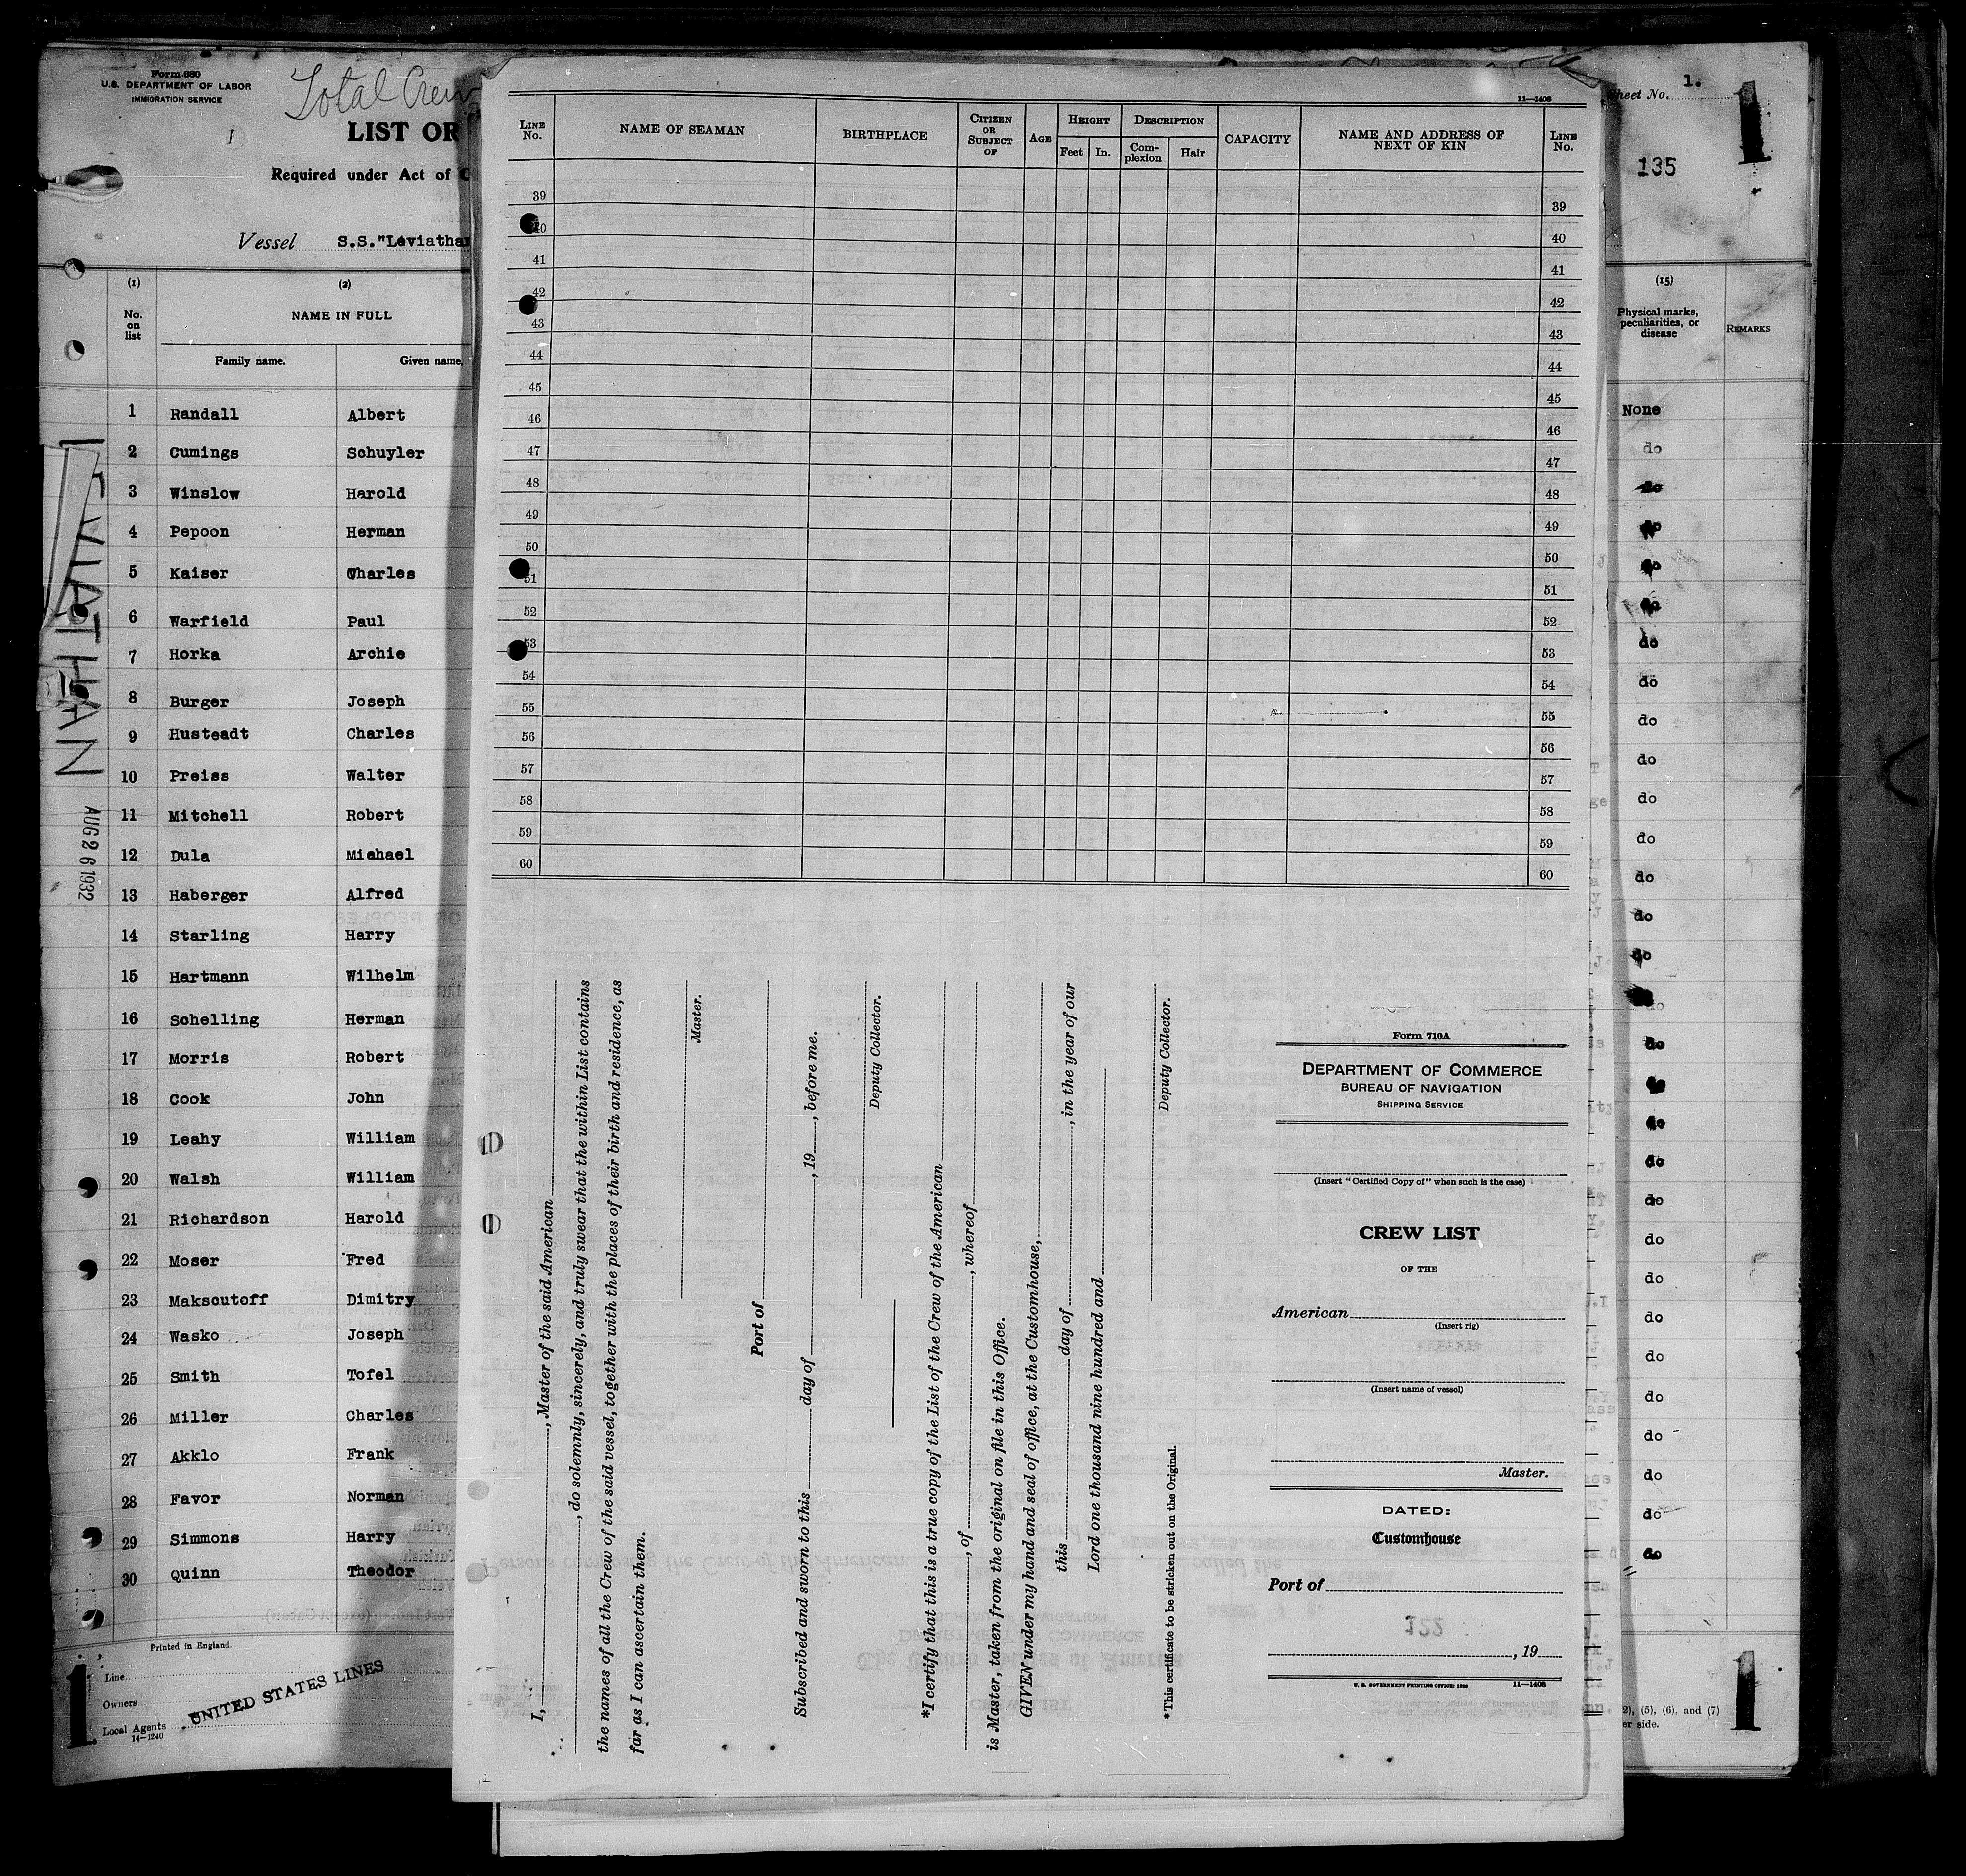 Form 680
U.S. DEPARTMENT OF LABOR
IMMIGRATION SERVICE
Total Crew
I
LIST OR
Required under Act of C
Vessel S.S."Leviathan
(1) (2)
No. on list
NAME IN FULL
Family name. Given name.
1 Randall Albert
2 Cumings Schuyler
3 Winslow Harold
4 Pepoon Herman
5 Kaiser Charles
6 Warfield Paul
7 Horka Archie
8 Burger Joseph
9 Husteadt Charles
10 Preiss Walter
11 Mitchell Robert
12 Dula Michael
13 Haberger Alfred
14 Starling Harry
15 Hartmann Wilhelm
16 Schelling Herman
17 Morris Robert
18 Cook John
19 Leahy William
20 Walsh William
21 Richardson Harold
22 Moser Fred
23 Maksoutoff Dimitry
24 Wasko Joseph
25 Smith Tofel
26 Miller Charles
27 Akklo Frank
28 Favor Norman
29 Simmons Harry
30 Quinn Theodor
Printed in England.
1
Line
Owners
Local Agents
14—1240
UNITED STATES LINES
LEVIATHAN
AUG 26 1932
11—1408
LINE No. NAME OF SEAMAN BIRTHPLACE CITIZEN OR SUBJECT OF AGE HEIGHT Feet In. DESCRIPTION Complexion Hair CAPACITY NAME AND ADDRESS OF NEXT OF KIN LINE No.
39 39
40 40
41 41
42 42
43 43
44 44
45 45
46 46
47 47
48 48
49 49
50 50
51 51
52 52
53 53
54 54
55 55
56 56
57 57
58 58
59 59
60 60
I, , Master of the said American
, do solemnly, sincerely, and truly swear that the within List contains
the names of all the Crew of the said vessel, together with the places of their birth and residence, as
far as I can ascertain them.
Master.
Port of
Subscribed and sworn to this day of , 19 , before me.
Deputy Collector.
*I certify that this is a true copy of the List of the Crew of the American
, of , whereof
is Master, taken from the original on file in this Office.
GIVEN under my hand and seal of office, at the Customhouse,
this day of , in the year of our
Lord one thousand nine hundred and
Deputy Collector.
*This certificate to be stricken out on the Original.
Form 710A
DEPARTMENT OF COMMERCE
BUREAU OF NAVIGATION
SHIPPING SERVICE
(Insert "Certified Copy of" when such is the case)
CREW LIST
OF THE
American
(Insert rig)
(Insert name of vessel)
Master.
DATED:
Customhouse
Port of
, 19
U. S. GOVERNMENT PRINTING OFFICE: 11—1408
Sheet No. 1.
1
135
(15)
Physical marks, peculiarities, or disease
REMARKS
None
do
do
do
do
do
do
do
do
do
do
do
do
do
do
do
do
do
do
do
do
do
do
do
do
do
do
do
do
do
2), (5), (6), and (7)
er side.
1